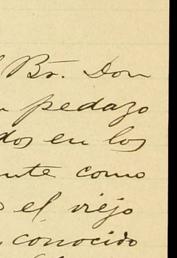 Br. Don
pedazo
dos en los
nte como
el viejo
conocido